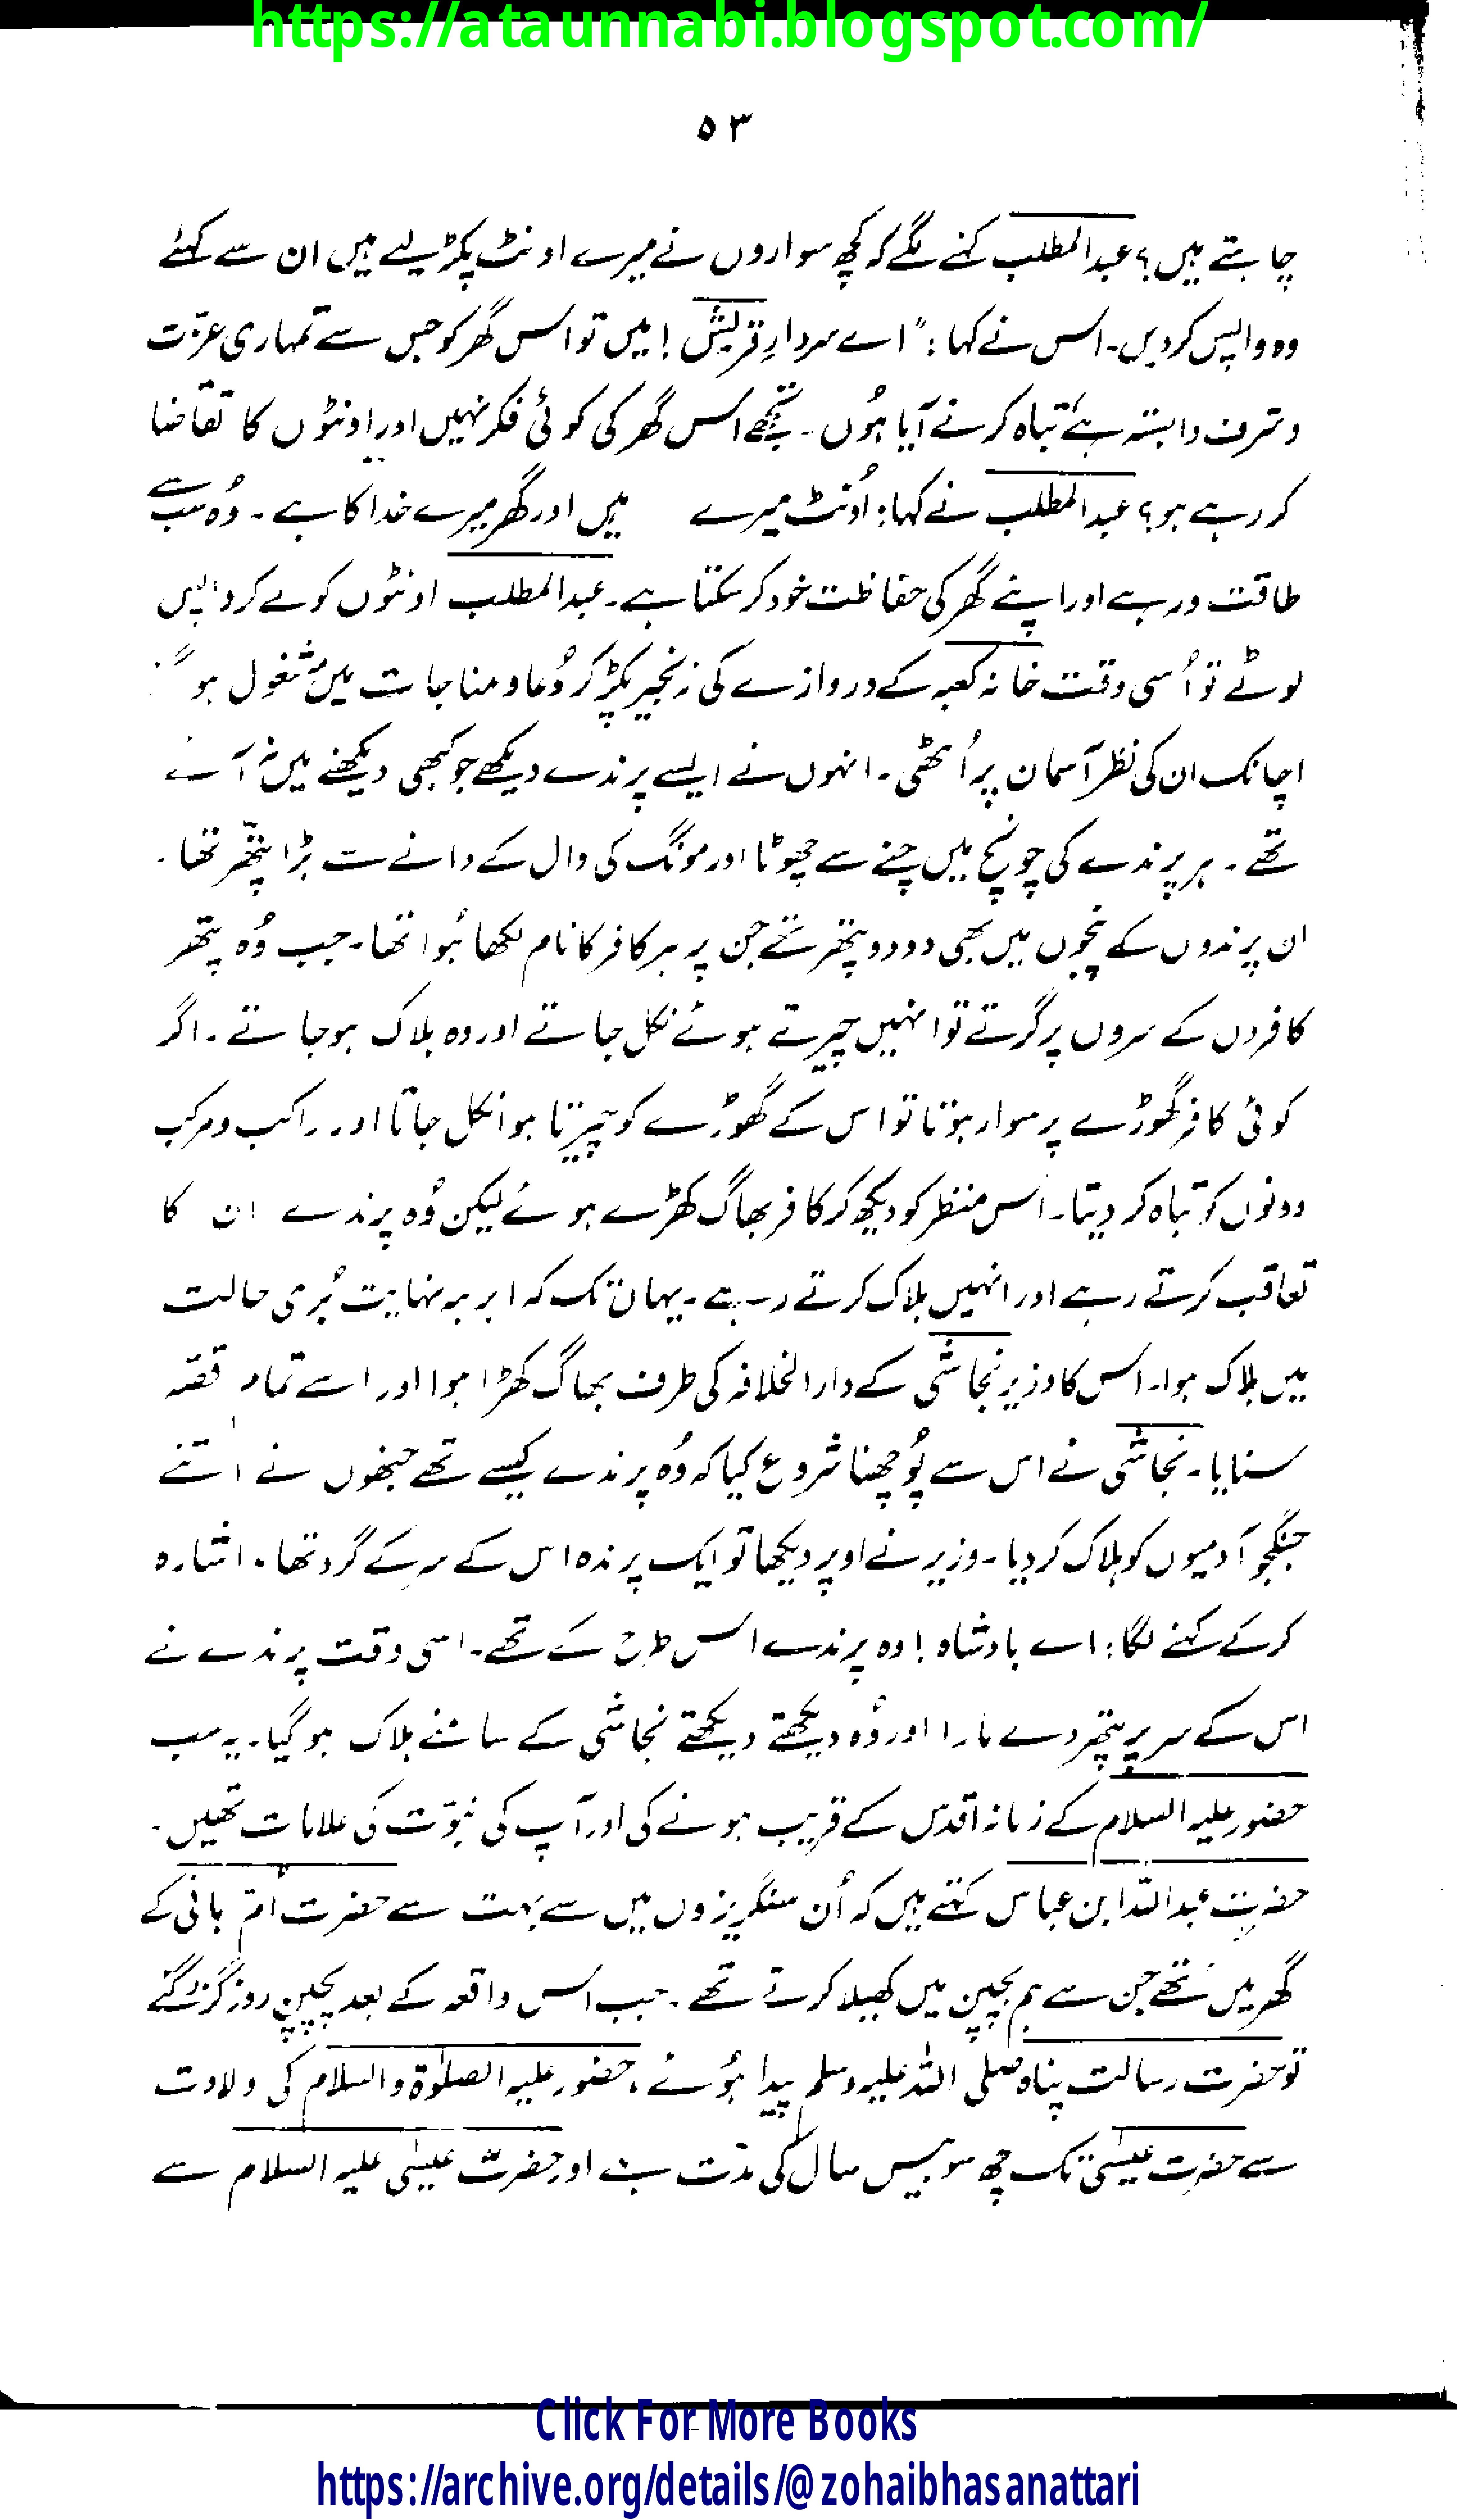 https://ataunnabi.blogspot.com/
۵۳
چاہتے ہیں؟ عبدالمطلب کہنے لگے کہ کچھ سواروں نے میرے اونٹ پکڑ لیے ہیں ان سے کہئے
وہ واپس کردیں۔ اس نے کہا: "اے سردارِ قریش! میں تو اس گھر کو جس سے تمہاری عزّت
و شرف وابستہ ہے تباہ کرنے آیا ہُوں۔ تجھے اس گھر کی کوئی فکر نہیں اور اونٹوں کا تقاضا
کر رہے ہو؟ عبدالمطلب نے کہا: اُونٹ میرے ہیں اور گھر میرے خدا کا ہے۔ وُہ سب سے
طاقت ور ہے اور اپنے گھر کی حفاظت خود کر سکتا ہے۔ عبدالمطلب اونٹوں کو لے کر واپس
لوٹے تو اُسی وقت خانہ کعبہ کے دروازے کی زنجیر پکڑ کر دُعا و مناجات میں مشغول ہو
اچانک ان کی نظر آسمان پر اُٹھی۔ انہوں نے ایسے پرندے دیکھے جو کبھی دیکھنے میں نہ آئے
تھے۔ ہر پرندے کی چونچ میں چنے سے چھوٹا اور مونگ کی دال کے دانے سے بڑا پتھّر تھا۔
ان پرندوں کے پنجوں میں بھی دو دو پتھر تھے جن پر ہر کافر کا نام لکھا ہُوا تھا۔ جب وُہ پتھر
کافروں کے سروں پر گرتے تو انہیں چیرتے ہوئے نکل جاتے اور وہ ہلاک ہوجاتے۔ اگر
کوئی کافر گھوڑے پر سوار ہوتا تو اس کے گھوڑے کو چیرتا ہوا نکل جاتا اور راکب و مرکب
دونوں کو تباہ کر دیتا۔ اس منظر کو دیکھ کر کافر بھاگ کھڑے ہوئے لیکن وُہ پرندے ان کا
تعاقب کرتے رہے اور انہیں ہلاک کرتے رہے۔ یہاں تک کہ ابرہہ نہایت بُری حالت
میں ہلاک ہوا۔ اس کا وزیر نجاشی کے دارالخلافہ کی طرف بھاگ کھڑا ہوا اور اسے تمام قصّہ
سنایا۔ نجاشی نے اس سے پُوچھنا شروع کیا کہ وُہ پرندے کیسے تھے جنھوں نے اتنے
جنگجو آدمیوں کو ہلاک کر دیا۔ وزیر نے اوپر دیکھا تو ایک پرندہ اس کے سر کے گرد تھا۔ اشارہ
کرکے کہنے لگا: اے بادشاہ! وہ پرندے اس طرح کے تھے۔ اسی وقت پرندے نے
اس کے سر پر پتھر دے مارا اور وُہ دیکھتے دیکھتے نجاشی کے سامنے ہلاک ہو گیا۔ یہ سب
حضور علیہ السلام کے زمانہ اقدس کے قریب ہونے کی اور آپ کی نبوّت کی علامات تھیں۔
حضرت عبداللہ ابن عباس کہتے ہیں کہ اُن سنگریزوں میں سے بہت سے حضرت اُمّ ہانی کے
گھر میں تھے جن سے ہم بچپن میں کھیلا کرتے تھے۔ جب اس واقعہ کے بعد پچپن روز گزر گئے
تو حضرت رسالت پناہ صلی اللہ علیہ وسلم پیدا ہُوئے، حضور علیہ الصلوٰۃ والسلام کی ولادت
سے حضرت عیسیٰ تک چھ سو بیس سال کی مدّت ہے اور حضرت عیسیٰ علیہ السلام سے
Click For More Books
https://archive.org/details/@zohaibhasanattari